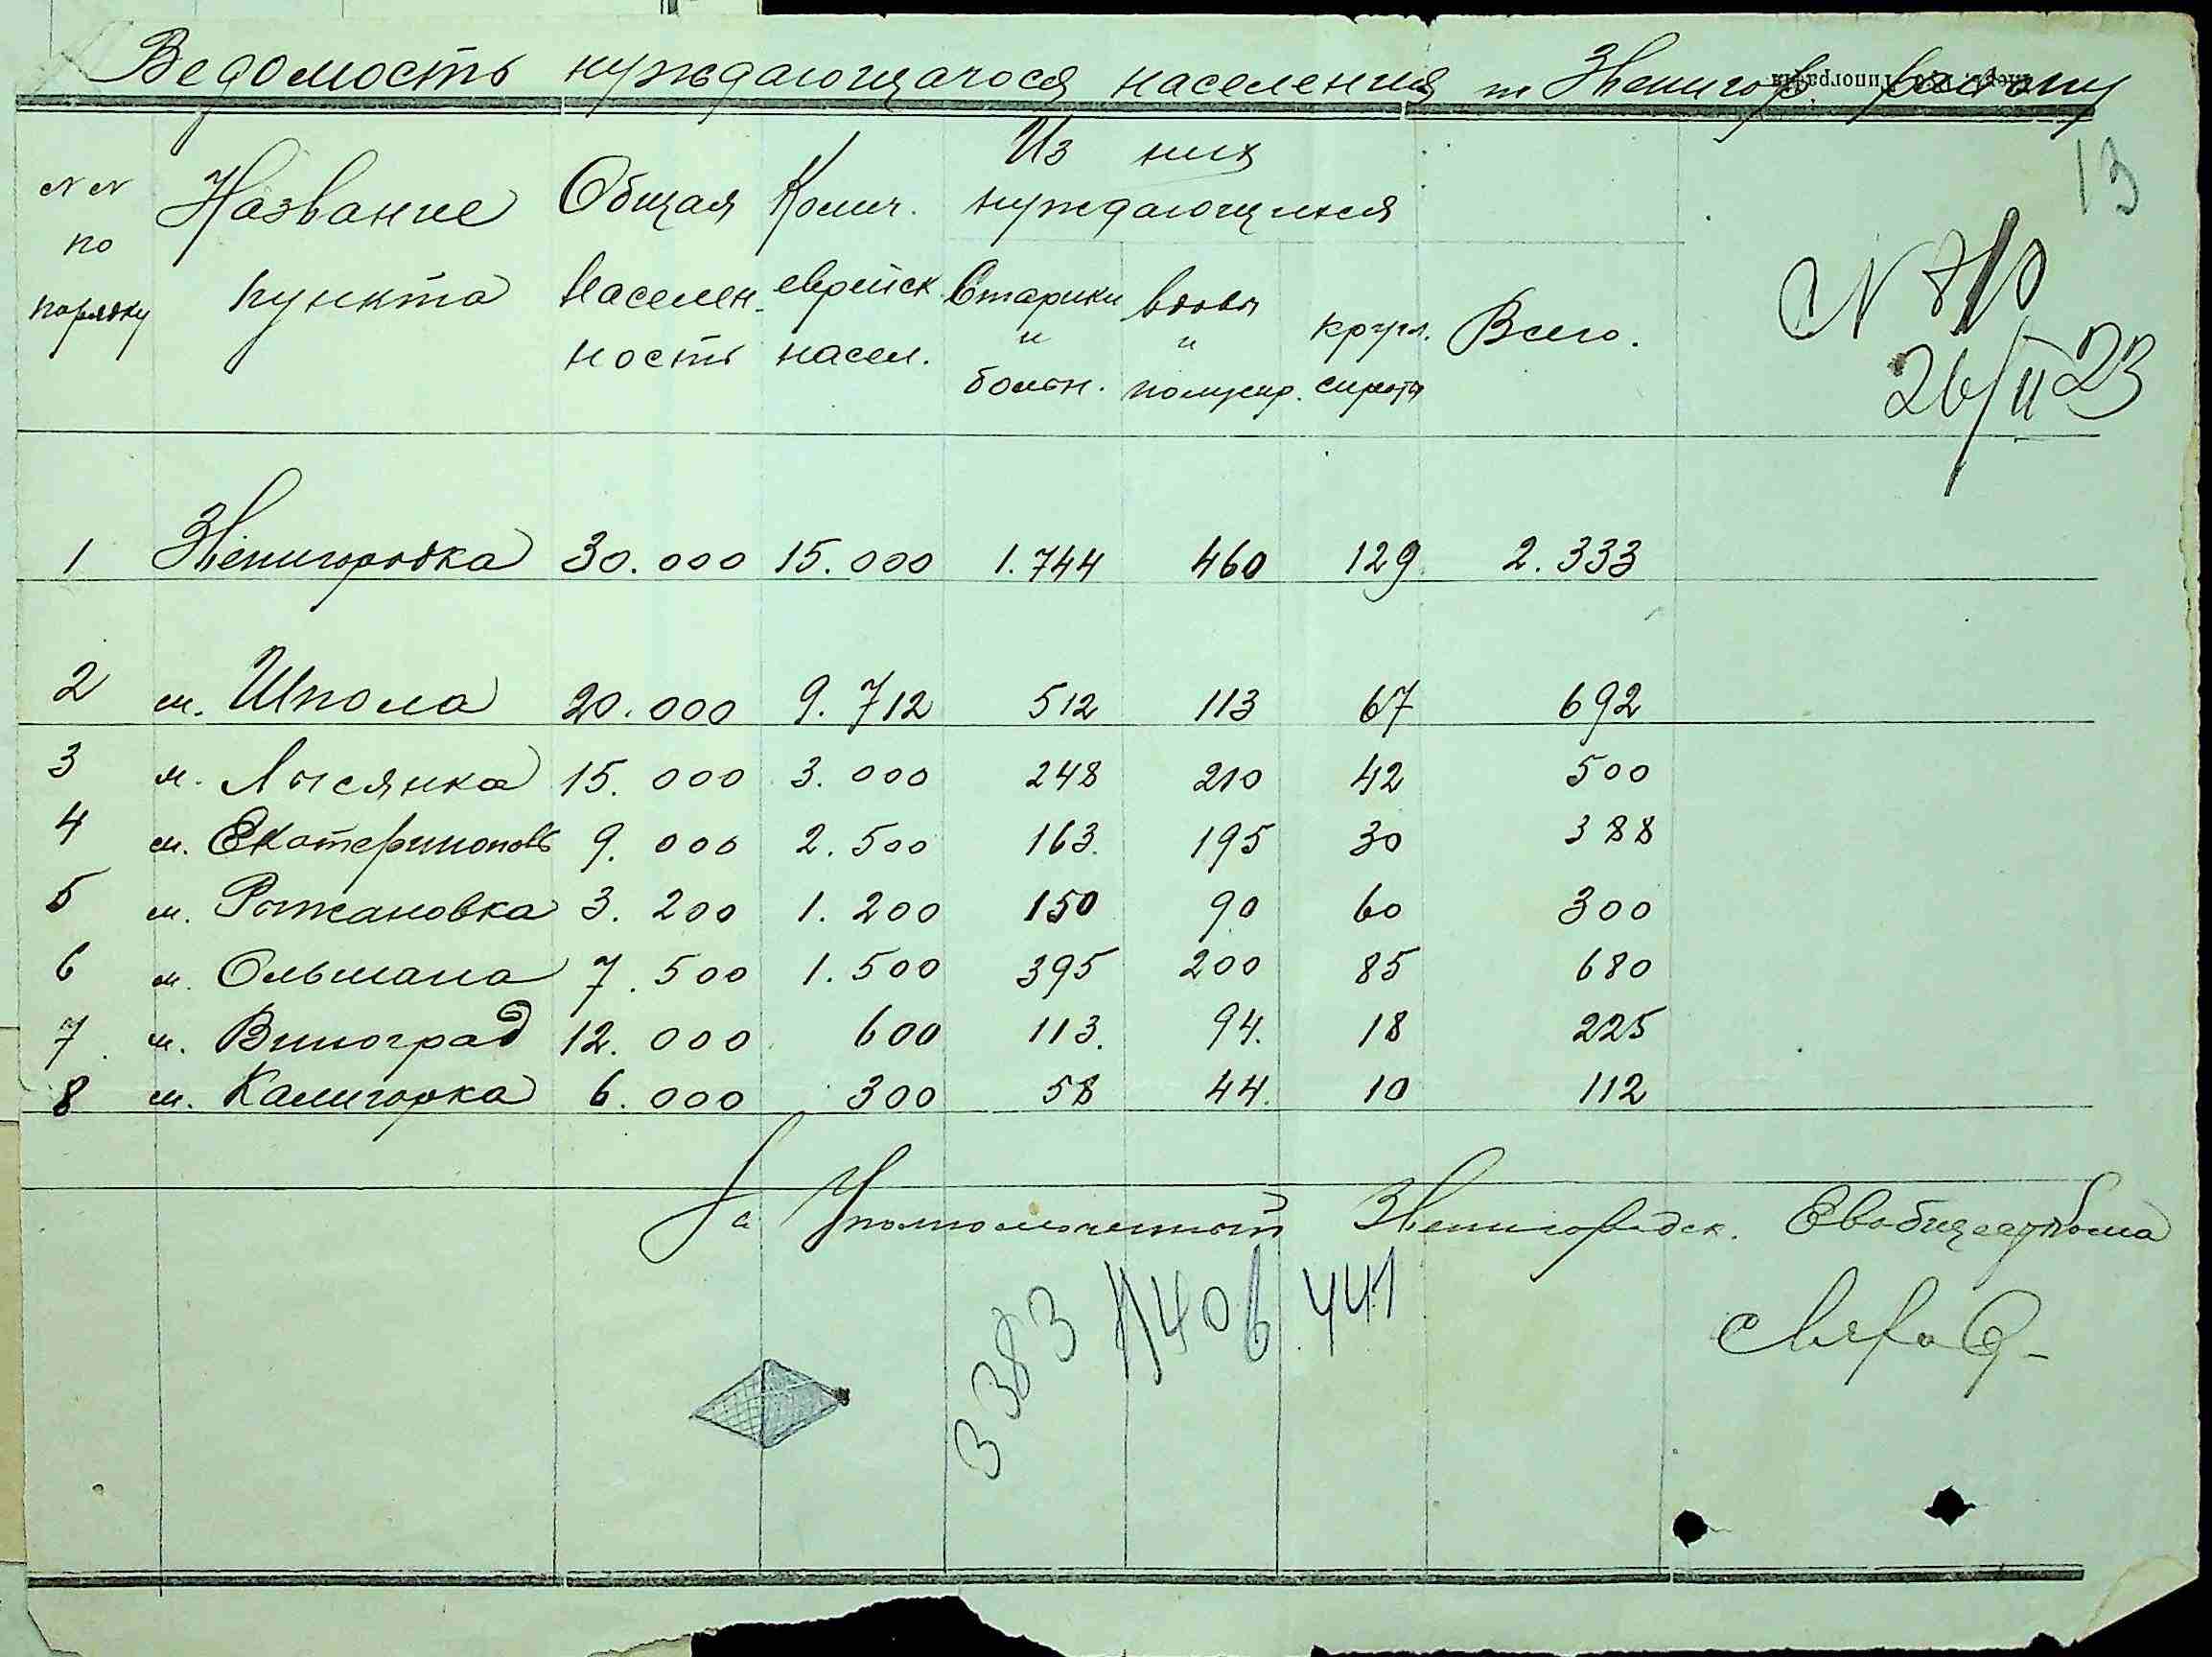 Ведомость нуждающагося населения по Звенигор. району
13
№№ по порядку | Название пункта | Общая населен-ность | Колич. еврейск. насел. | Из них нуждающихся
Старики и больн. | вдовы и полусир. | кругл. сироты | Всего.
N 810
26/II 23
1 Звенигородка 30.000 15.000 1.744 460 129 2.333
2 м. Шпола 20.000 9.712 512 113 67 692
3 м. Лысянка 15.000 3.000 248 210 42 500
4 м. Екатеринополь 9.000 2.500 163 195 30 388
5 м. Рыжановка 3.200 1.200 150 90 60 300
6 м. Ольшана 7.500 1.500 395 200 85 680
7. м. Виноград 12.000 600 113. 94. 18 225
8 м. Калигорка 6.000 300 58 44. 10 112
За Уполномоченный Звенигородск. Евобщесткома
3383 1406 441